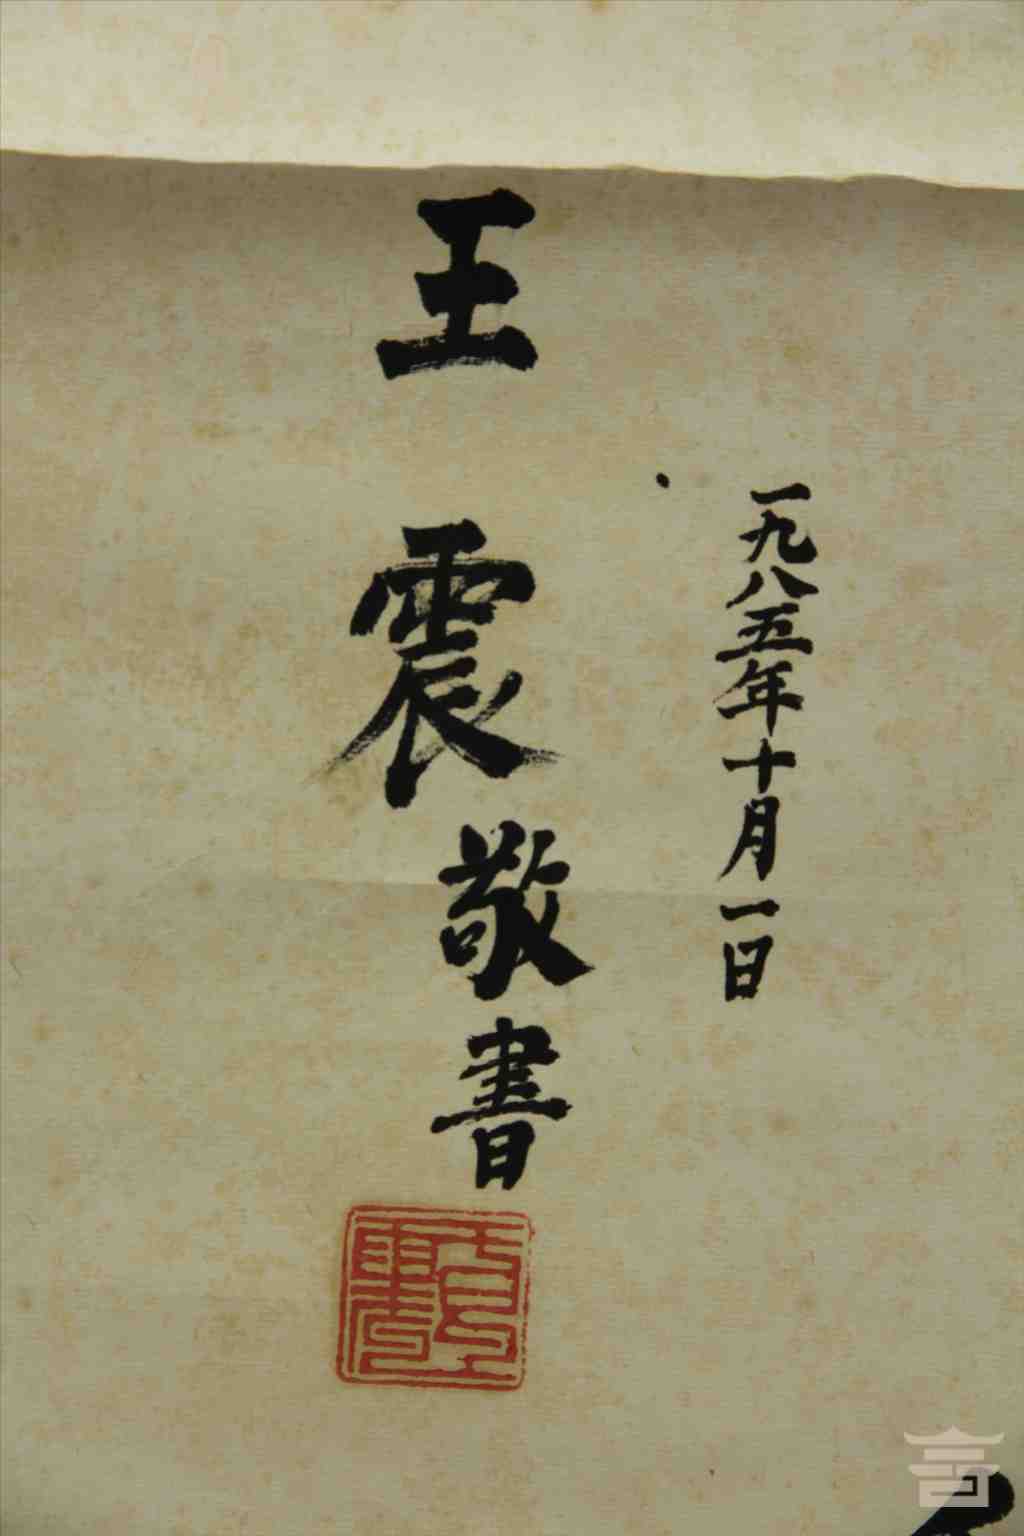 一九八五年十月一日
王震敬書